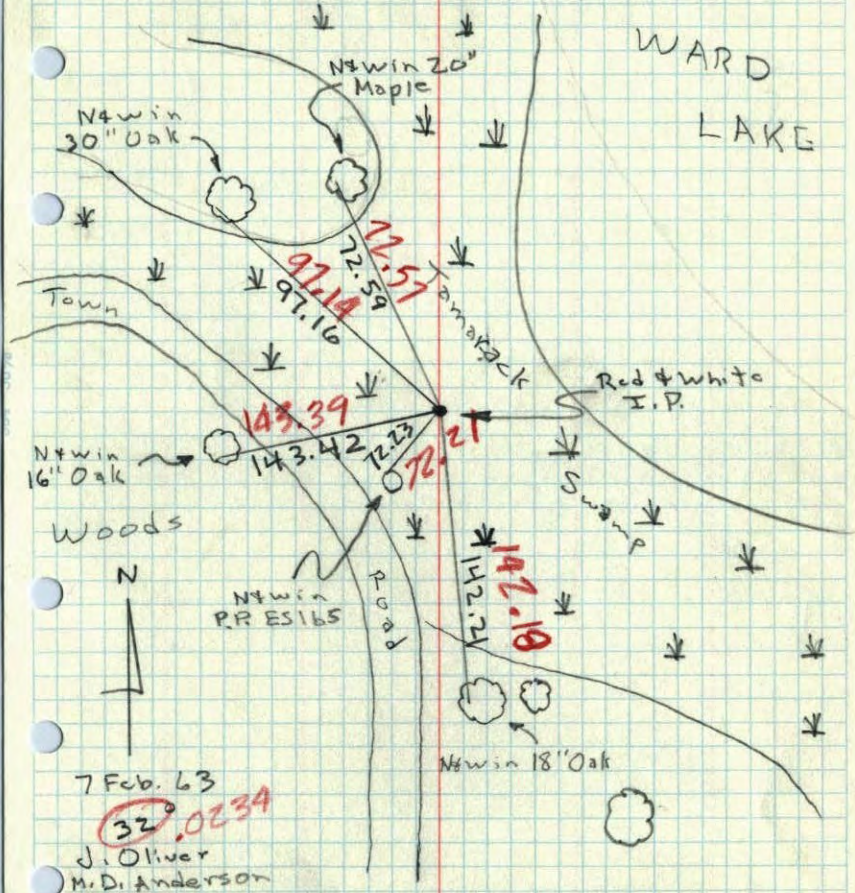 WARD
LAKE
N&W in 20"
Maple
N&W in
30" Oak
72.57
72.59
97.14
97.16
Tamarack
Swamp
Town
Road
Red & White
I.P.
143.39
143.42
72.23
72.21
N&W in
16" Oak
Woods
N
N&W in
P.P. ES165
142.21
142.18
N&W in 18" Oak
7 Feb. 63
32° .0234
J. Oliver
M.D. Anderson